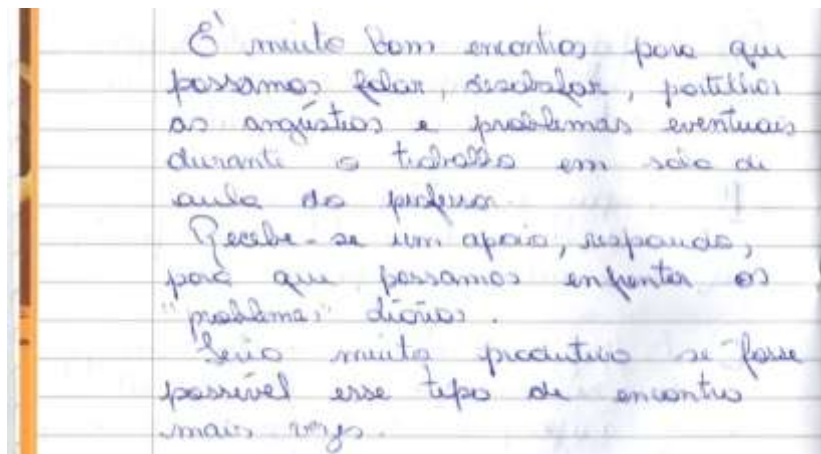 É muito bom encontros para que
possamos falar, desabafar, partilhar
as angústias e problemas eventuais
durante o trabalho em sala de
aula do professor.
Recebe-se um apoio, respaudo,
para que possamos enfrentar os
"problemas" diários.
Seria muito produtivo se fosse
possível esse tipo de encontro
mais vezes.